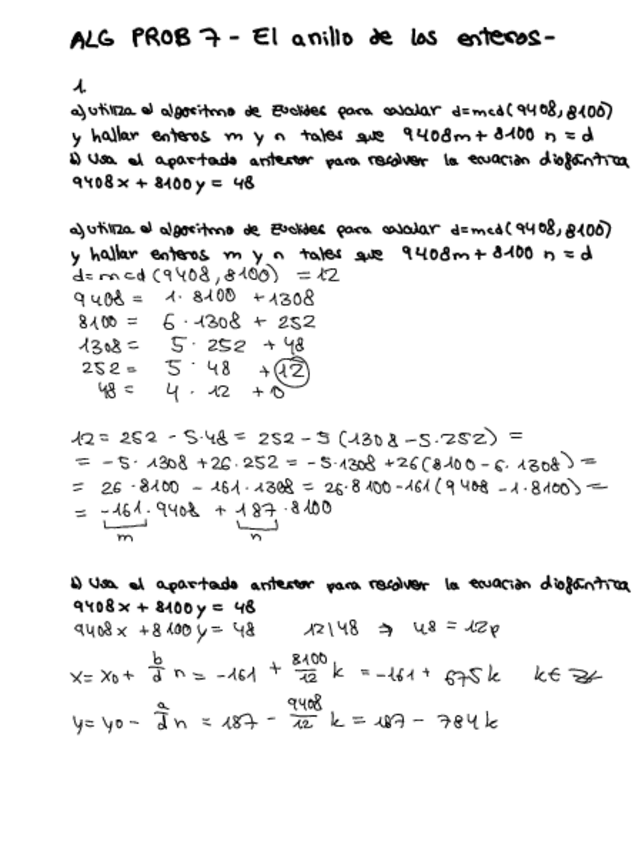 ALG PROB 7 - El anillo de los enteros -
1
a) utiliza el algoritmo de Euclides para calcular d=mcd(9408, 8100)
y hallar enteros m y n tales que 9408m + 8100 n = d
b) Usa el apartado anterior para resolver la ecuación diofántica
9408x + 8100y = 48
a) utiliza el algoritmo de Euclides para calcular d=mcd(9408, 8100)
y hallar enteros m y n tales que 9408m + 8100 n = d
d = mcd (9408, 8100) = 12
9408 = 1 · 8100 + 1308
8100 = 6 · 1308 + 252
1308 = 5 · 252 + 48
252 = 5 · 48 + 12
48 = 4 · 12 + 0
12 = 252 - 5·48 = 252 - 5 (1308 - 5·252) =
= -5 · 1308 + 26·252 = -5·1308 + 26(8100 - 6·1308) =
= 26 · 8100 - 161·1308 = 26·8100 - 161(9408 - 1·8100) =
= -161·9408 + 187·8100
m n
b) Usa el apartado anterior para resolver la ecuación diofántica
9408x + 8100y = 48
9408x + 8100y = 48 12|48 ⇒ 48 = 12p
x = x0 + b/d n = -161 + 8100/12 k = -161 + 675k k∈ℤ
y = y0 - a/d n = 187 - 9408/12 k = 187 - 784k